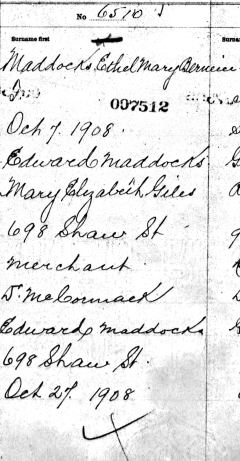 No 6510
Surname first
Surname
Maddocks Ethel Mary Bernice
007512
Oct 7. 1908.
Edward Maddocks
Mary Elizabeth Giles
698 Shaw St
Merchant
D. McCormack
Edward Maddocks
698 Shaw St.
Oct. 27. 1908